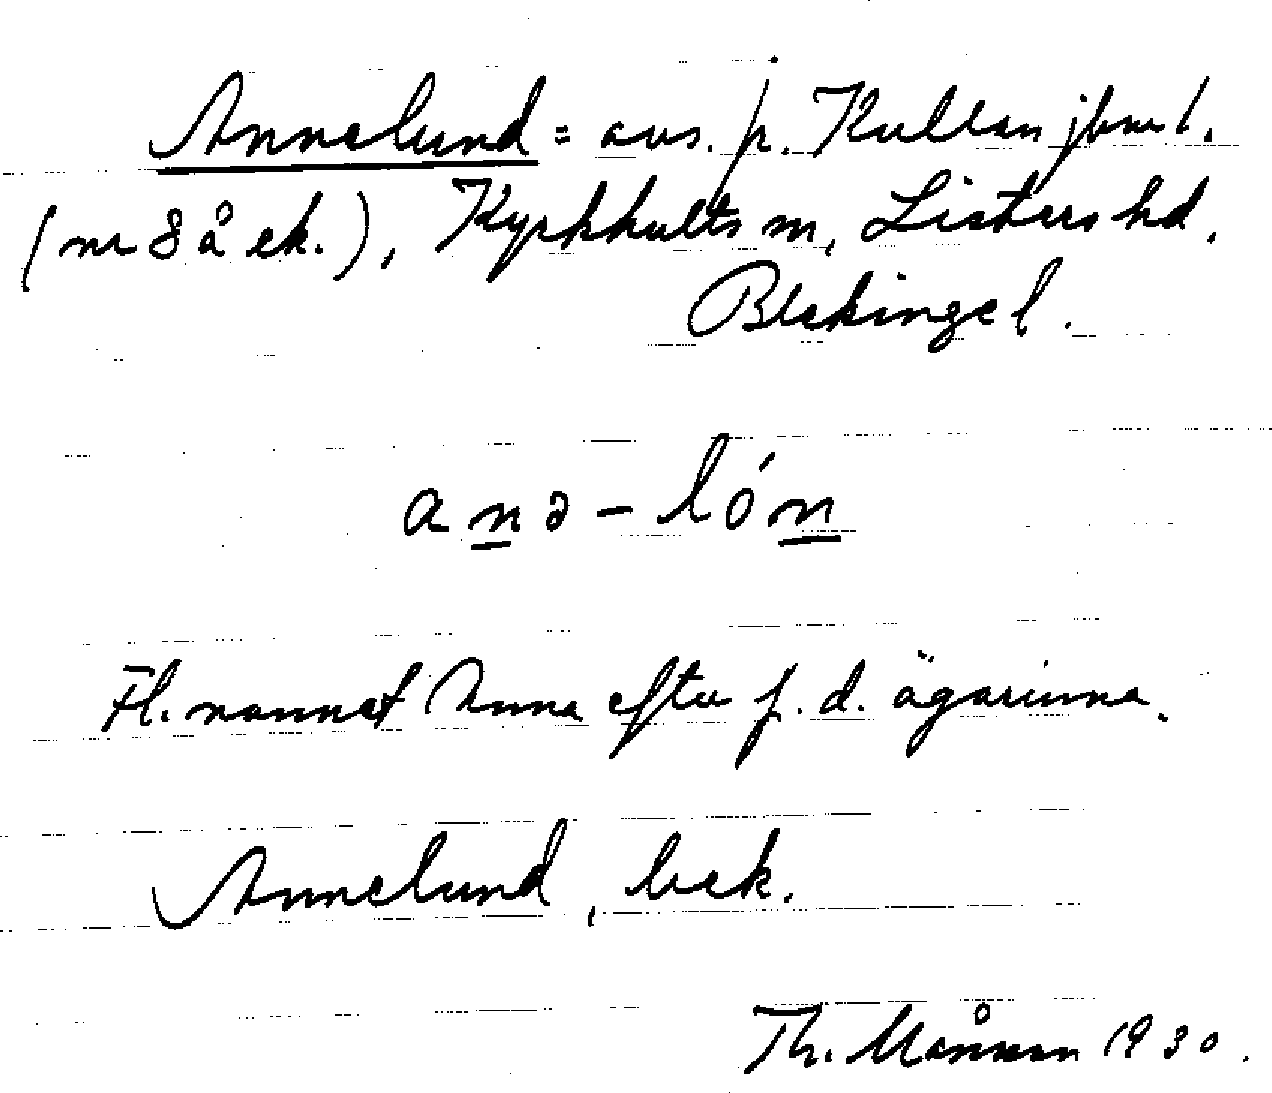 Annelund = avs. p. Kullan jbnr 1.
(nr 8 å ek.), Kyrkhults sn, Listers hd,
Blekinge l.
anə - lón
Fl. namnet Anna efter f. d. ägarinna.
Annelund, bek.
Th. Månsson 1930.